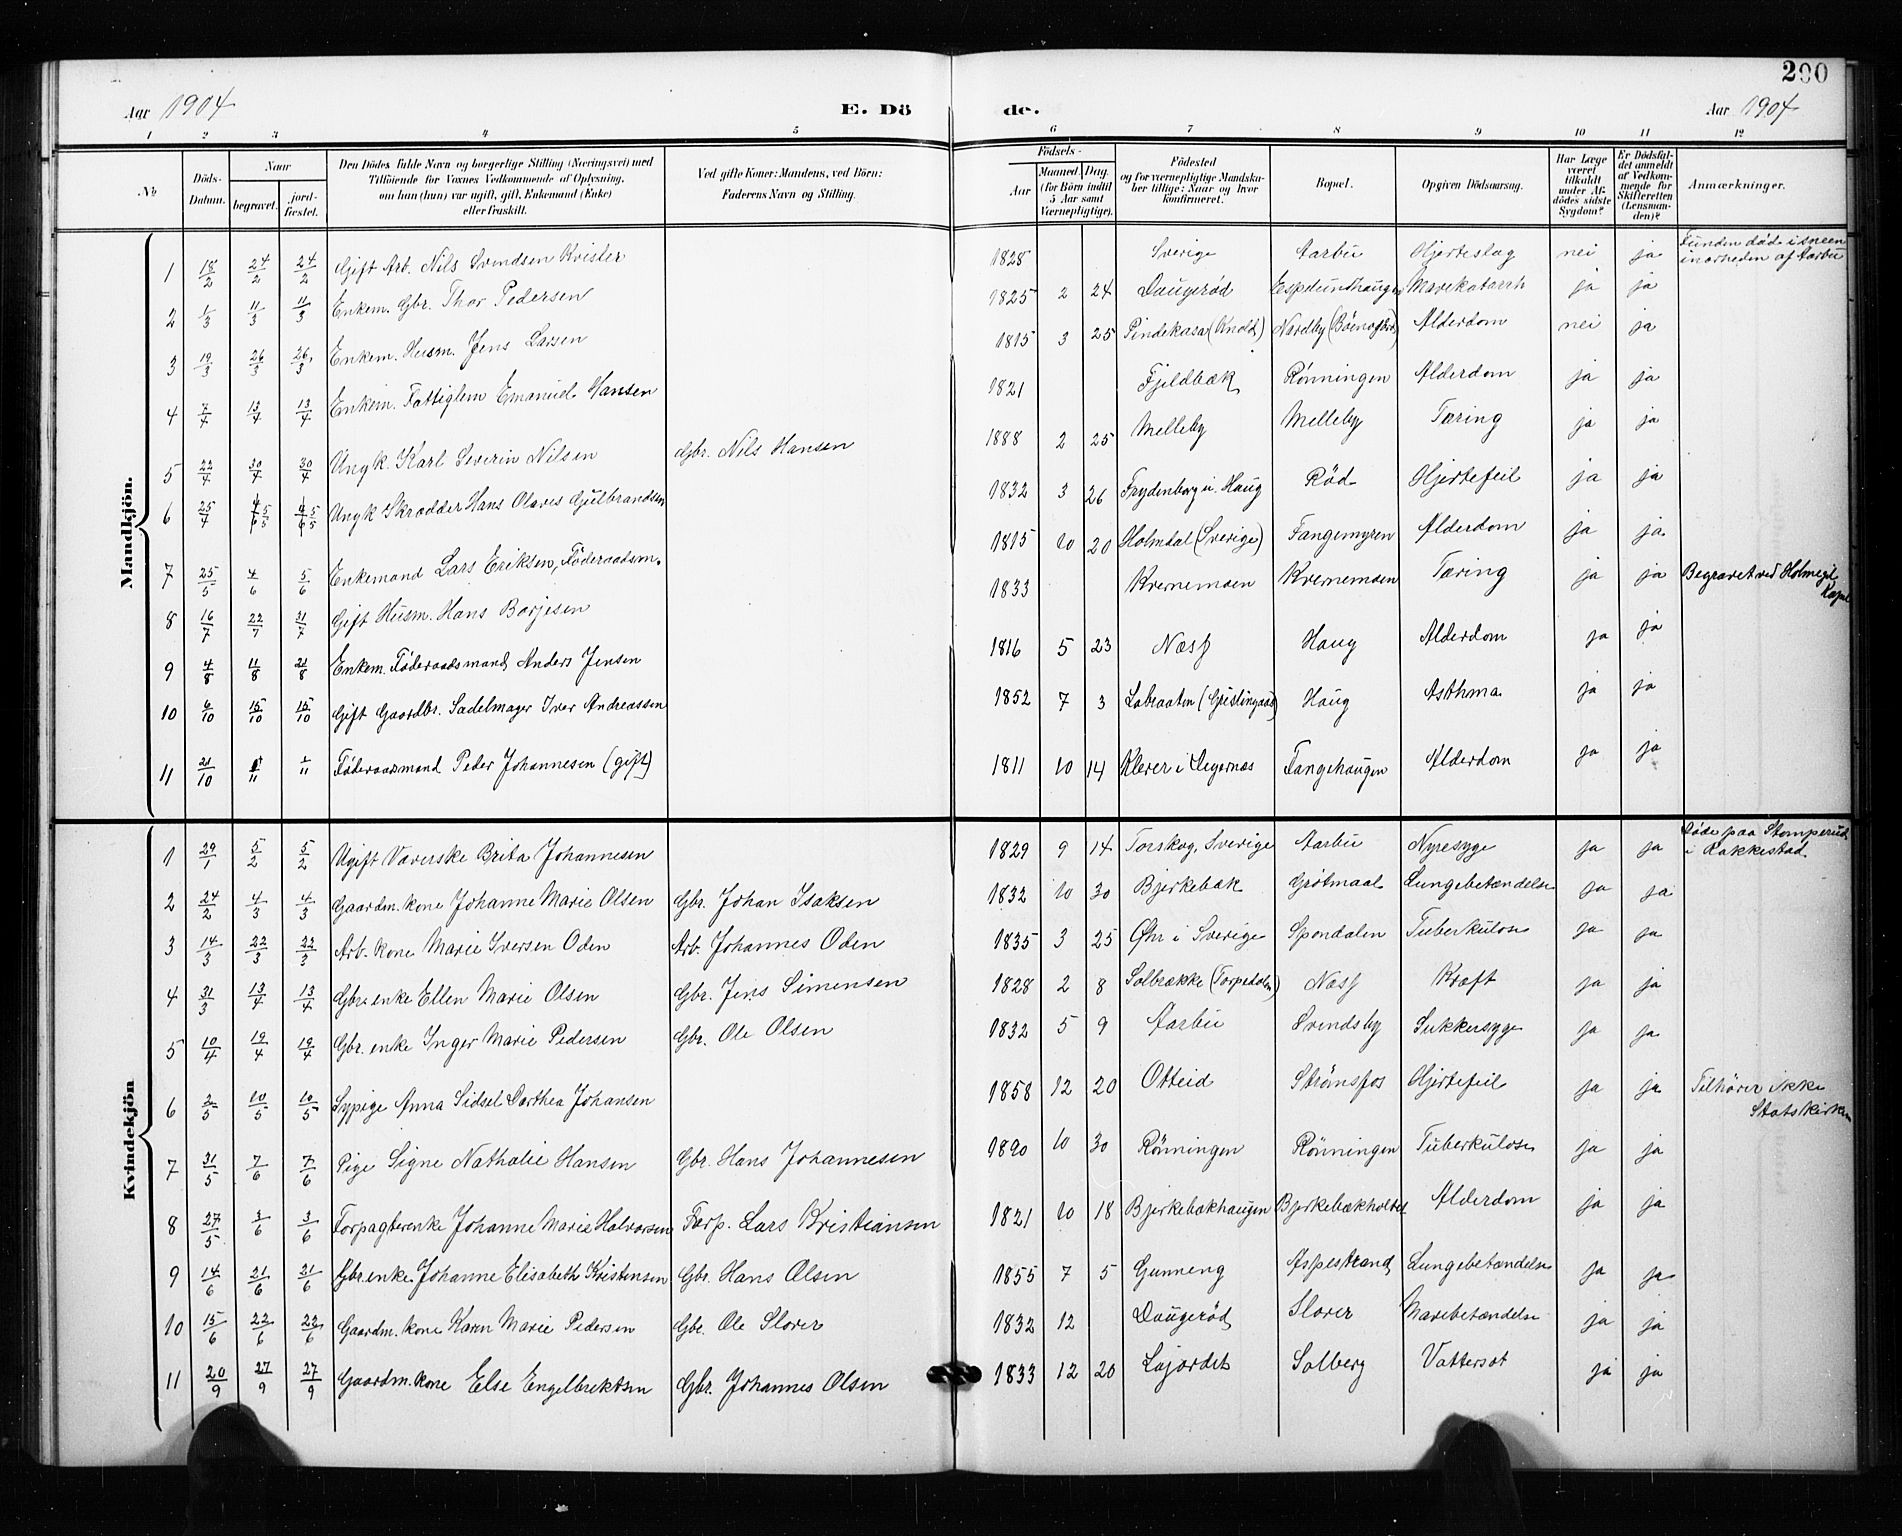 200
Aar 1904 E. Dö de. Aar 1904
1 2 3 4 5 6 7 8 9 10 11 12
No. Döds-Datum. Naar begravet. jordfæstet. Den Dödes fulde Navn og borgerlige Stilling (Næringsvei) med Tilföiende for Voxnes Vedkommende af Oplysning, om han (hun) var ugift, gift, Enkemand (Enke) eller fraskilt. Ved gifte Koner: Mandens, ved Börn: Faderens Navn og Stilling. Födsels- Aar Maaned. Dag. (for Börn indtil 5 Aar samt Værnepligtige). Födested og for værnepligtige Mandskaber tillige: Naar og hvor konfirmeret. Bopæl. Opgiven Dödsaarsag. Har Læge været tilkaldt under Afdödes sidste Sygdom? Er Dödsfaldet anmeldt af Vedkommende for Skifteretten (Lensmanden)? Anmærkninger.
Mandkjön.
1 18/2 24/2 24/2 Gift Arb. Nils Svendsen Kvister 1828 Sverige Aarbu Hjerteslag nei ja Funden död i sneen i nærheden af Aarbu
2 1/3 11/3 11/3 Enkem. Gbr. Thor Pedersen 1825 2 24 Daugeröd Espelundhaugen Mavekatarrh ja ja
3 19/3 26/3 26/3 Enkem. Husm. Jens Larsen 1815 3 25 Pindekasa (Knold) Nordby Alderdom nei ja
4 7/4 13/4 13/4 Enkem. Fattiglem Emanuel Hansen 1821 Fjeldbæk Rönningen Alderdom ja ja
5 22/4 30/4 30/4 Ungk. Karl Severin Nilsen Gbr. Nils Hansen 1888 2 25 Melleby Melleby Tæring ja ja
6 25/4 5/5 5/5 Ungk Skrædder Hans Olaves Gulbrandsen 1832 3 26 Frydenborg i Haug Röd Hjertefeil ja ja
7 25/5 4/6 5/6 Enkemand Lars Eriksen, Föderaadsm. 1815 10 20 Holmdal (Sverige) Fangemyren Alderdom ja ja
8 16/7 22/7 31/7 Gift Husm. Hans Borjesen 1833 Kvernemoen Kvernemoen Tæring ja ja Begravet ved Holmegil Kapel
9 4/8 11/8 21/8 Enkem. Föderaadsmand Anders Jensen 1816 5 23 Næss Haug Alderdom ja ja
10 6/10 15/10 15/10 Gift Gaardbr. Sadelmager Iver Andreassen 1852 7 3 Labraaten Haug Asthma ja ja
11 21/10 1/11 1/11 Föderaadsmand Peder Johannesen (gift) 1811 10 14 Klever i Degernæs Fangehaugen Alderdom ja ja
Kvindekjön
1 29/1 5/2 5/2 Ugift Væverske Brita Johannesen 1829 9 14 Torskog, Sverige Aarbu Nyresyge ja ja Döde paa Stomperud i Rakkestad
2 24/2 4/3 4/3 Gaardm. kone Johanne Marie Olsen Gbr. Johan Isaksen 1832 10 30 Bjerkebæk Grötmaal Lungebetændelse ja ja
3 14/3 22/3 22/3 Arb. kone Marie Iversen Oden Arb. Johannes Oden 1835 3 25 Öhr i Sverige Spondalen Tuberkulose ja ja
4 31/3 13/4 13/4 Gbr. enke Ellen Marie Olsen Gbr. Jens Simensen 1828 2 8 Solbrække (Torpedalen) Næss Kræft ja ja
5 10/4 19/4 19/4 Gbr. enke Inger Marie Pedersen Gbr. Ole Olsen 1832 5 9 Aarbu Svendsby Sukkersyge ja ja
6 2/5 10/5 10/5 Sypige Anna Sidsel Dorthea Johansen 1858 12 20 Otteid Strömsfos Hjertefeil ja ja Tilhörer ikke Statskirken
7 31/5 7/6 7/6 Pige Signe Nathalie Hansen Gbr. Hans Johannesen 1890 10 30 Rönningen Rönningen Tuberkulose ja ja
8 27/5 3/6 3/6 Forpagterenke Johanne Marie Halvorsen Forp. Lars Kristiansen 1821 10 18 Bjerkebækhaugen Bjerkebækholtet Alderdom ja ja
9 14/6 21/6 21/6 Gbr. enke Johanne Elisabeth Kristensen Gbr. Hans Olsen 1855 7 5 Gunneng Aspestrand Lungebetændelse ja ja
10 15/6 22/6 22/6 Gaardm. kone Karen Marie Pedersen Gbr. Ole Slorer 1832 12 Daugeröd Slorer Mavebetændelse ja ja
11 20/9 27/9 27/9 Gaardm. kone Else Engelbrektsen Gbr. Johannes Olsen 1833 12 20 Lajordet Solberg Vattersot ja ja